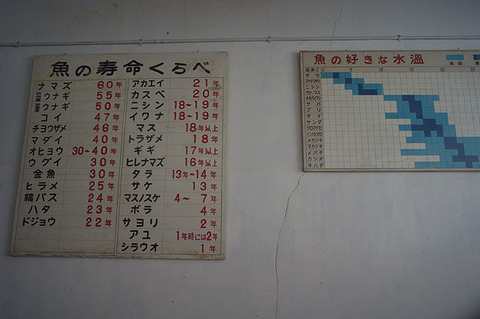 魚の寿命くらべ
ナマズ 60年
ウナギ 55年
ウナギ 50年
コイ 47年
チョウザメ 46年
マダイ 40年
オヒョウ 30~40年
ウグイ 30年
金魚 30年
ヒラメ 25年
縞バス 24年
ハタ 23年
ドジョウ 22年
アカエイ 21年
カスベ 20年
ニシン 18~19年
イワナ 18~19年
マス 18年以上
トラザメ 18年
ギギ 17年以上
ヒレナマズ 16年以上
タラ 13年~14年
サケ 13年
マスノスケ 4~7年
ボラ 4年
サヨリ 2年
アユ 1年時には2年
シラウオ 1年
魚の好きな水温
タラ
ニシン
サケ
サバ
ブリ
サンマ
カツオ
キハダ